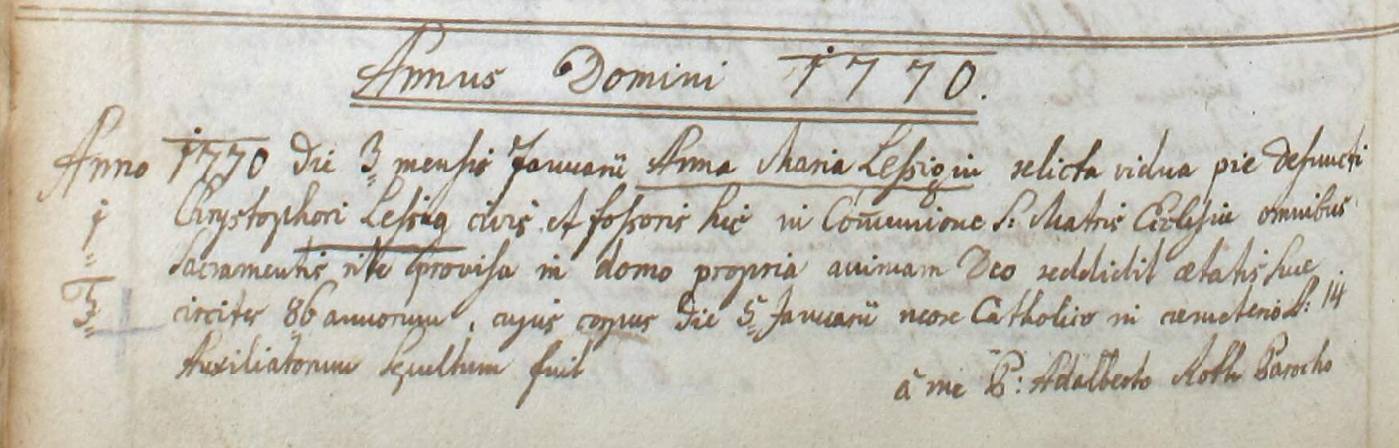 Annus Domini 1770.
Anno 1770 die 3 mensis Januarii Anna Maria Leßigin relicta vidua pie defuncti
1 Chrystophori Leßig civis et foßoris hic in Com̄unione S: Matris Ecclesiæ omnibus
Sacramentis rite provisa in domo propria animam Deo reddidit ætatis suæ
3 circiter 86 annorum, cujus corpus die 5 Januarii more Catholico in cæmeterio S: 14
Auxiliatorum sepultum fuit
à me P: Adalberto Roth Parocho